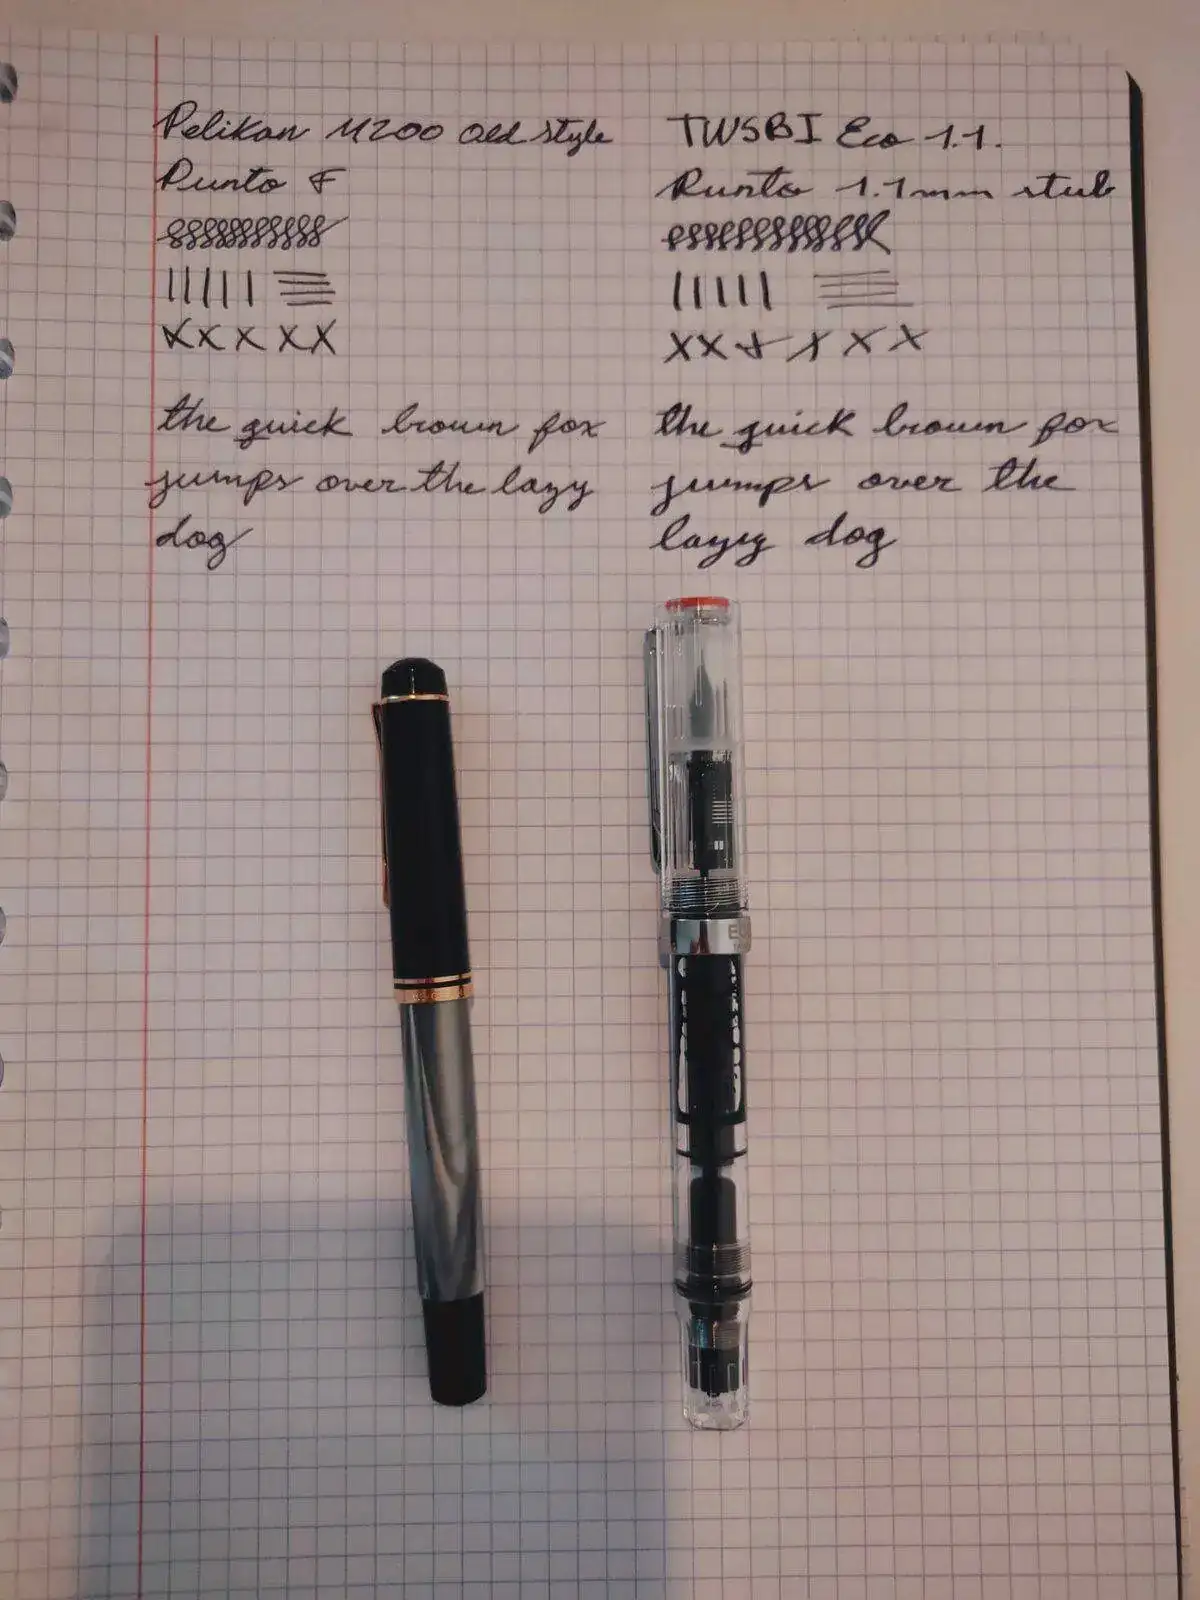 Pelikan M200 Old style
Punto F
xxxxx
the quick brown fox
jumps over the lazy
dog
TWSBI Eco 1.1.
Punto 1.1mm stub
xxxxxx
the quick brown fox
jumps over the
lazy dog